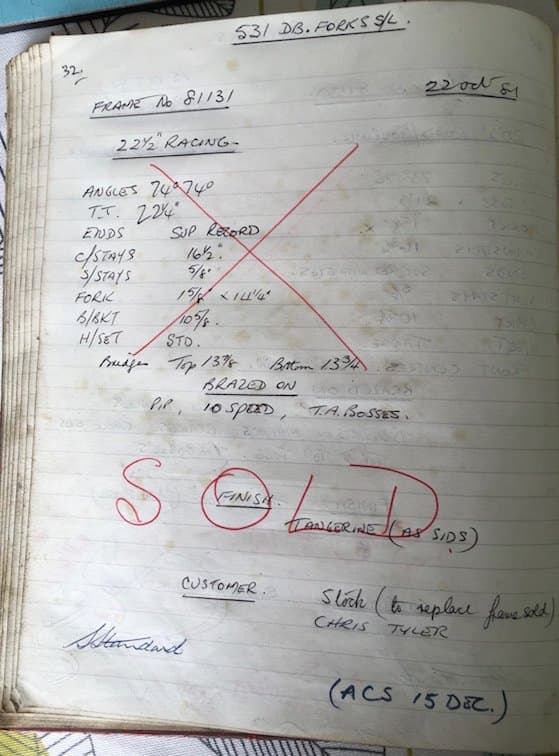 531 DB. FORKS S/L.
32.
22 Oct 81
FRAME No 81131
22½" RACING.
ANGLES 74° 74°
T.T. 22¼"
ENDS SUP RECORD
C/STAYS 16½"
S/STAYS 5/8"
FORK 1 5/8" x 14¼"
B/BKT 10 5/8
H/SET STD.
Bridges Top 13 3/8 Bottom 13 3/4
BRAZED ON
PIP, 10 SPEED, T.A. BOSSES.
SOLD
FINISH.
TANGERINE (AS SIDS)
CUSTOMER.
Stock (to replace frame sold)
CHRIS TYLER
(ACS 15 DEC.)